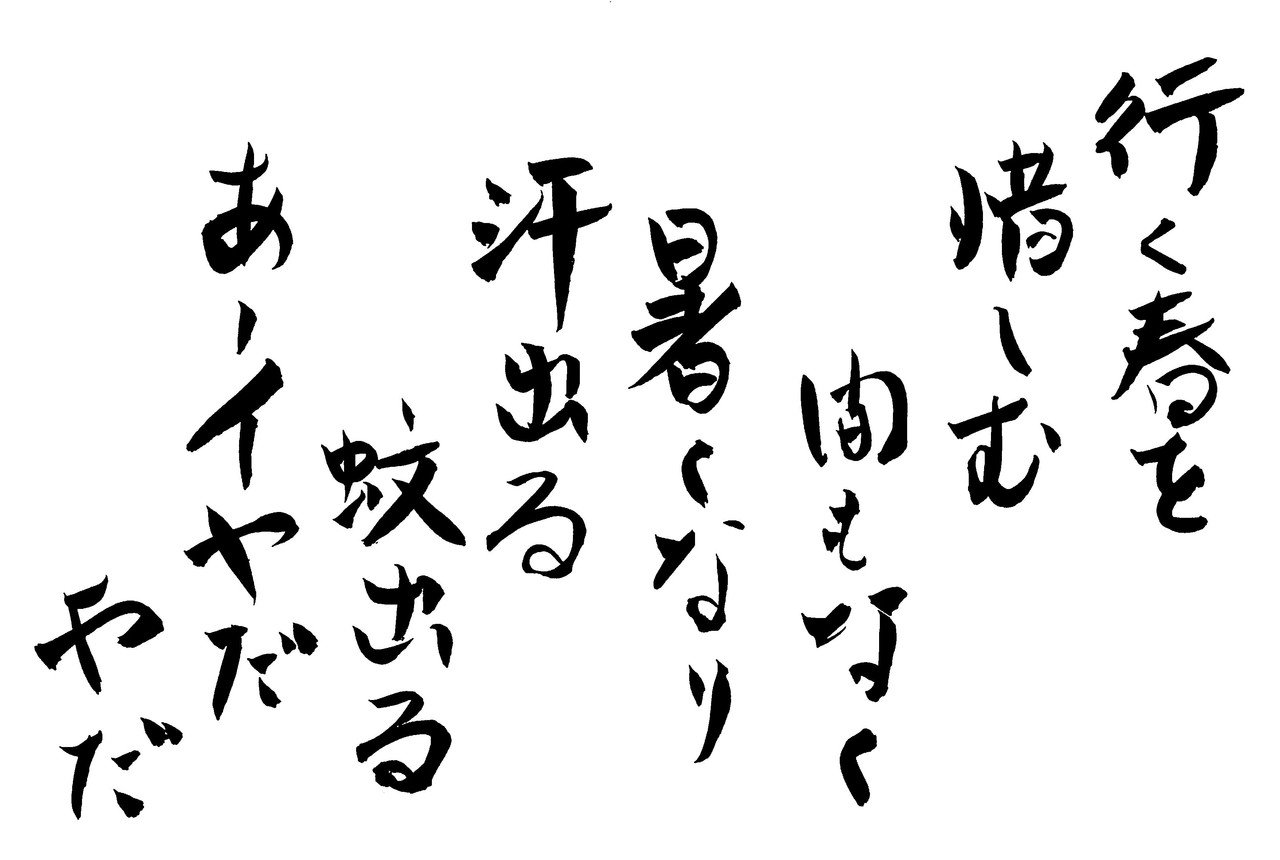 行く春を
惜しむ
間もなく
暑くなり
汗出る
蚊出る
あーイヤだ
やだ